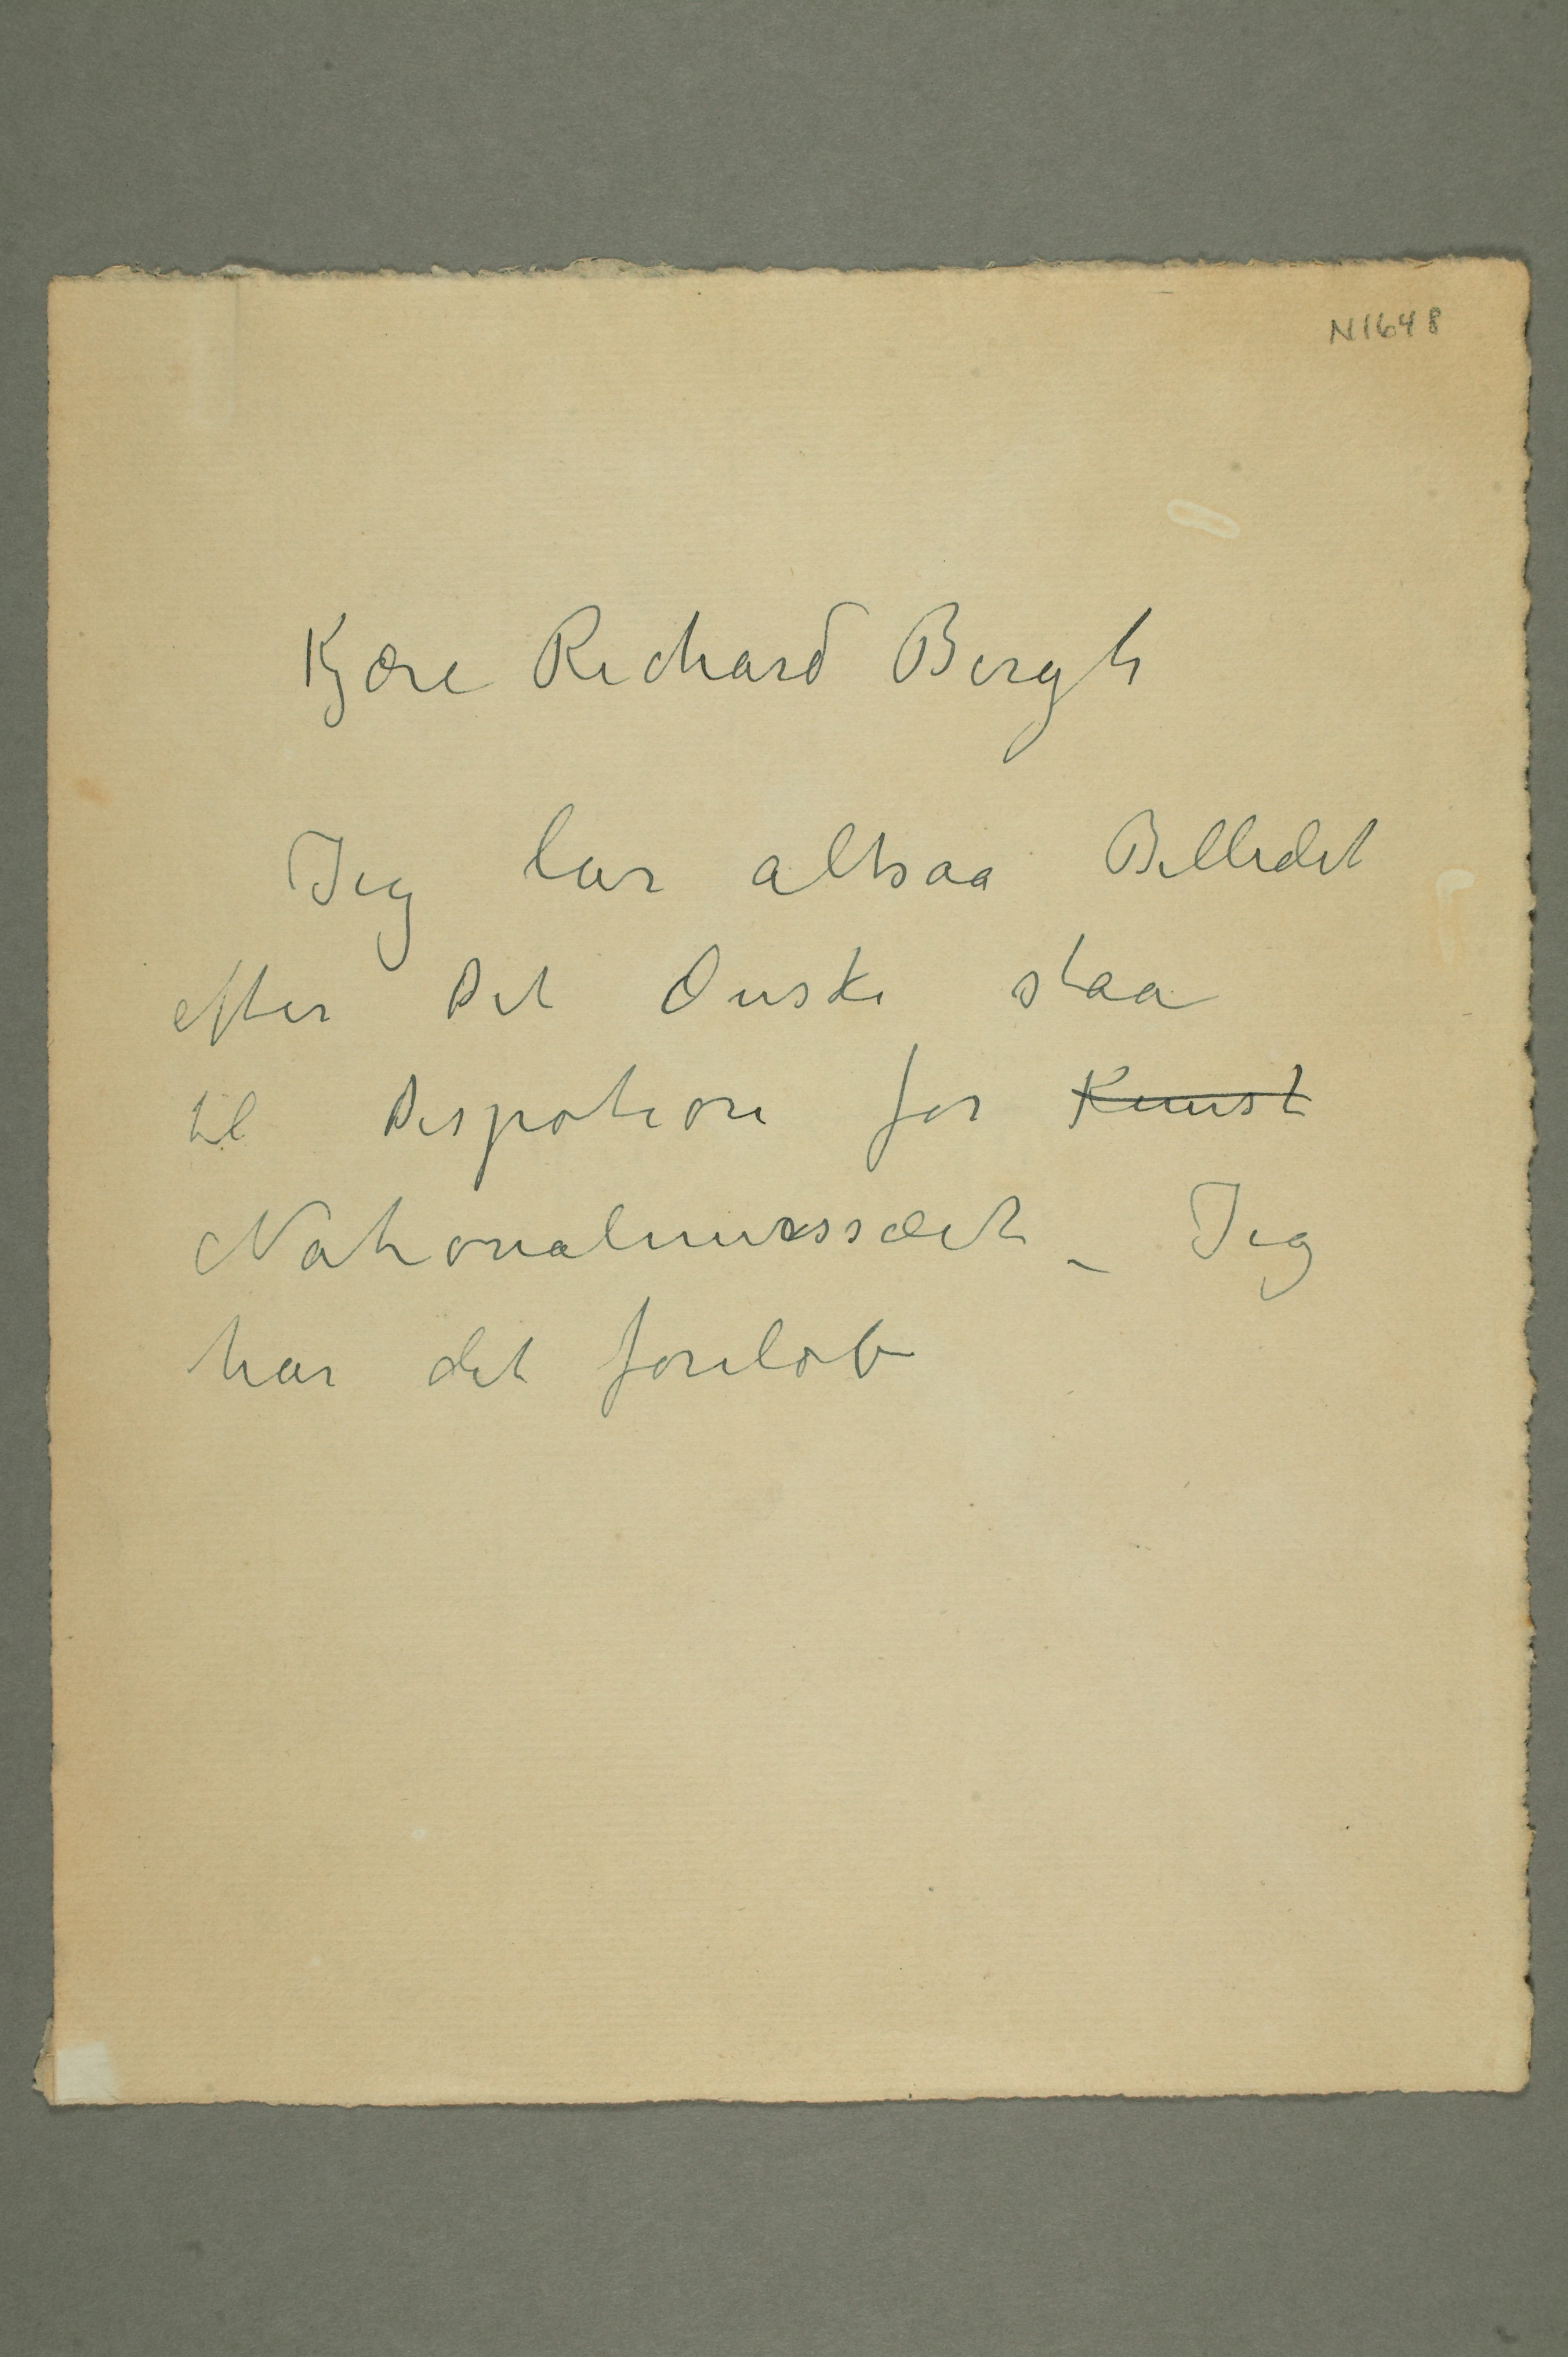 N1648
Kjære Richard Bergh
Jeg lar altsaa Billedet
efter Dit Ønske staa
til Dispotion for Kunst
Nationalmussæet – Jeg
har det foreløb